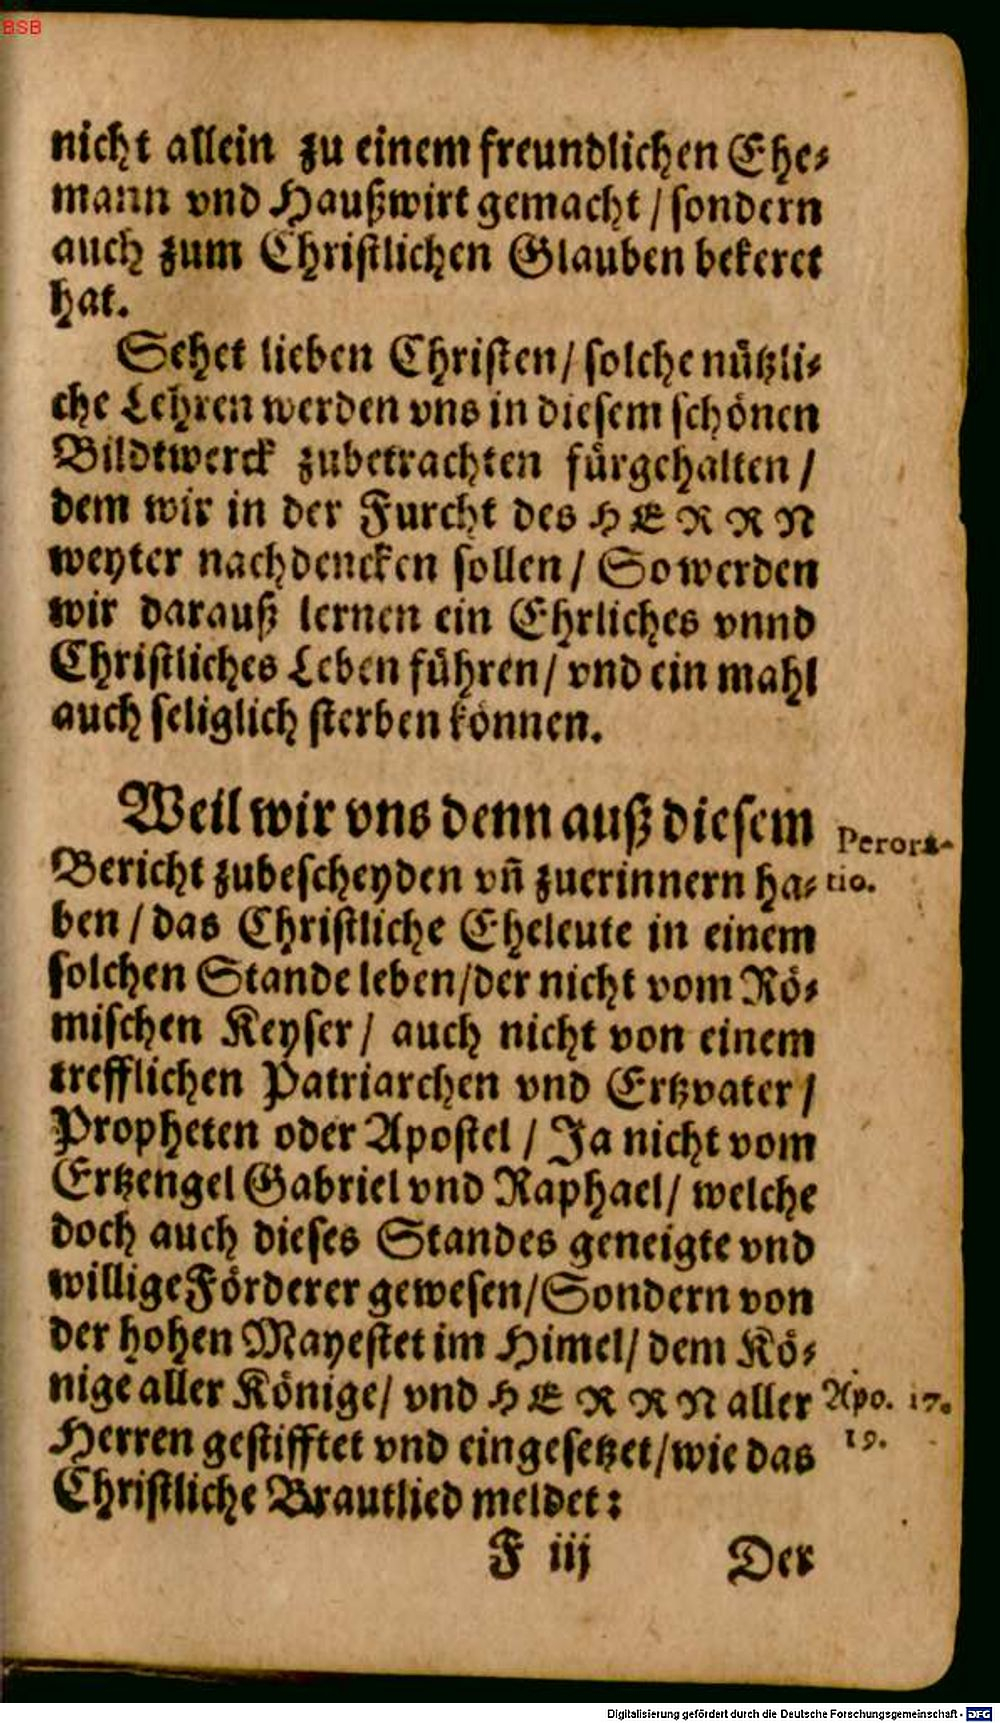 BSB
nicht allein zu einem freundlichen Ehe-
mann vnd Haußwirt gemacht / sondern
auch zum Christlichen Glauben bekeret
hat.
Sehet lieben Christen / solche nützli-
che Lehren werden vns in diesem schönen
Bildtwerck zubetrachten fürgehalten /
dem wir in der Furcht des HERRN
weyter nachdencken sollen / So werden
wir darauß lernen ein Ehrliches vnnd
Christliches Leben führen / vnd ein mahl
auch seliglich sterben können.
Weil wir vns denn auß diesem
Perora-
Bericht zubescheyden vn̄ zuerinnern ha-
tio.
ben / das Christliche Eheleute in einem
solchen Stande leben / der nicht vom Rö-
mischen Keyser / auch nicht von einem
trefflichen Patriarchen vnd Ertzvater /
Propheten oder Apostel / Ja nicht vom
Ertzengel Gabriel vnd Raphael / welche
doch auch dieses Standes geneigte vnd
willige Förderer gewesen / Sondern von
der hohen Mayestet im Himel / dem Kö-
nige aller Könige / vnd HERRN aller
Apo. 17.
Herren gestifftet vnd eingesetzet / wie das
19.
Christliche Brautlied meldet:
F iij Der
Digitalisierung gefördert durch die Deutsche Forschungsgemeinschaft - DFG